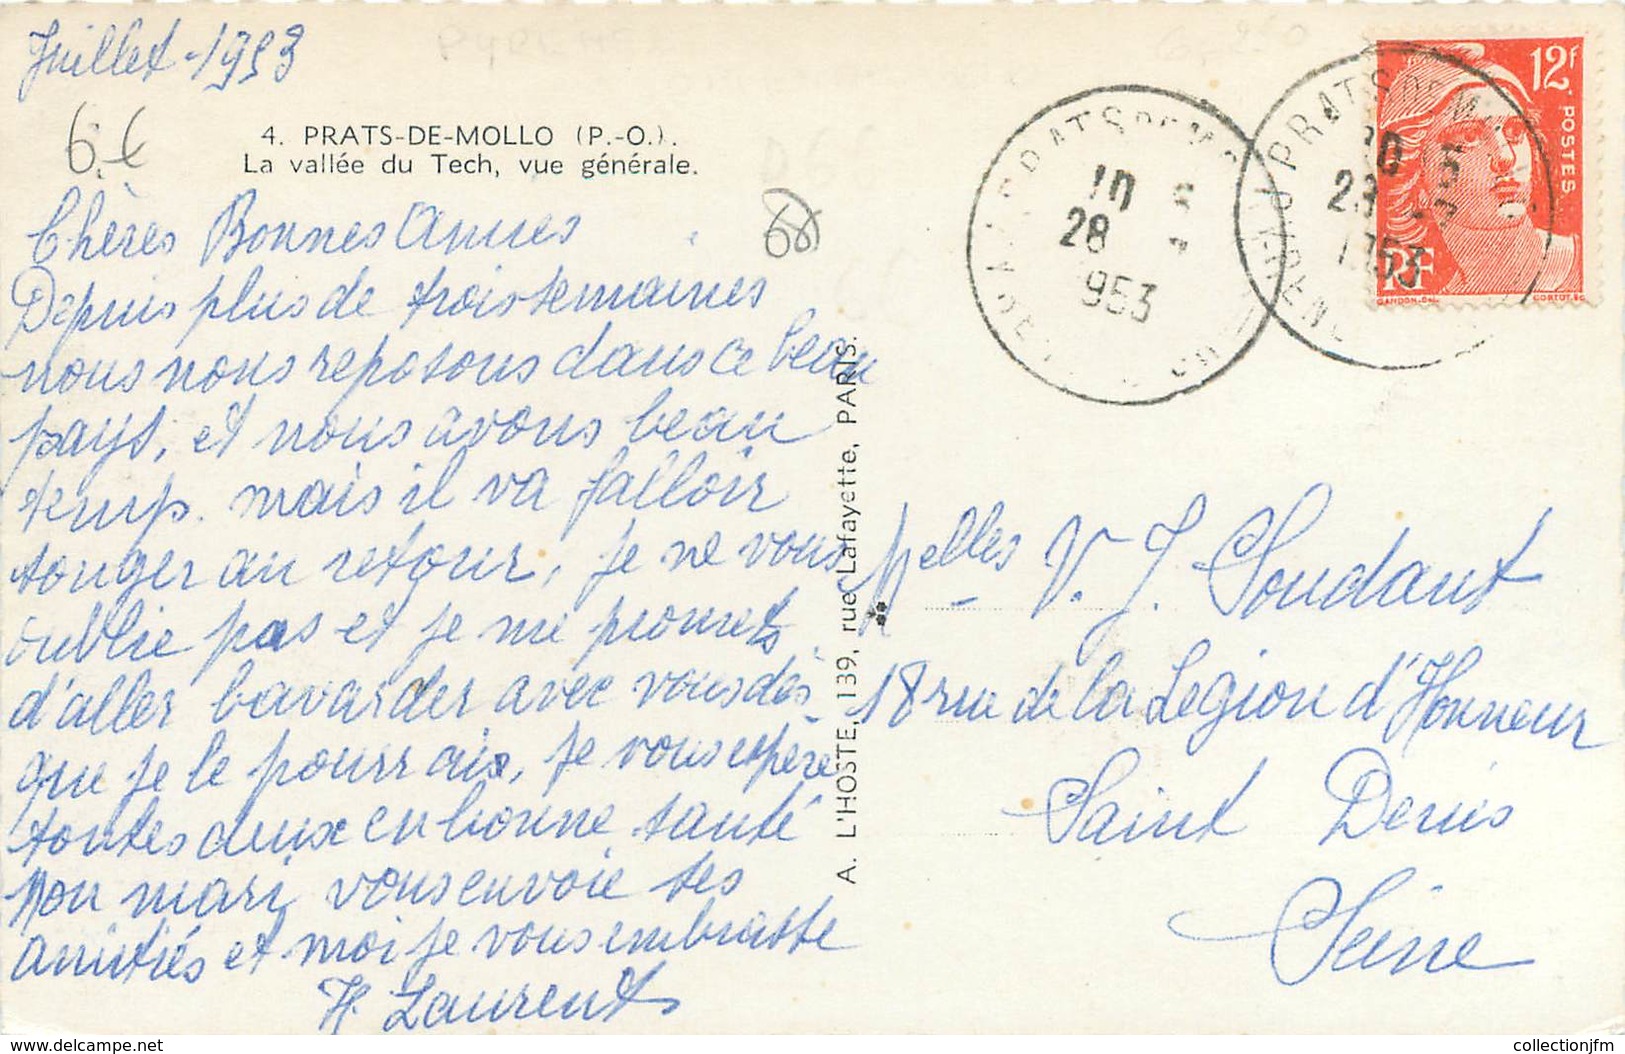 Juillet 1953
66
4. PRATS-DE-MOLLO (P.-O.).
La vallée du Tech, vue générale.
Chères Bonnes Amies
Depuis plus de trois semaines
nous nous reposons dans ce beau
pays, et nous avons beau
temps. mais il va falloir
songer au retour, je ne vous
oublie pas et je me promets
d'aller bavarder avec vous dès
que je le pourrais, je vous espère
toutes deux en bonne santé
Mon mari vous envoie ses
amitiés et moi je vous embrasse
H. Laurent
A. L'HOSTE, 139, rue Lafayette, PARIS.
PRATS DE MO
10
28
953
PRATS DE M
1953
12F
POSTES
RF
GANDON.Del.
CORTOT.SC
Melles V. J. Soudant
18 rue de la Légion d'Honneur
Saint Denis
Seine
http://www.delcampe.net
collectionjfm